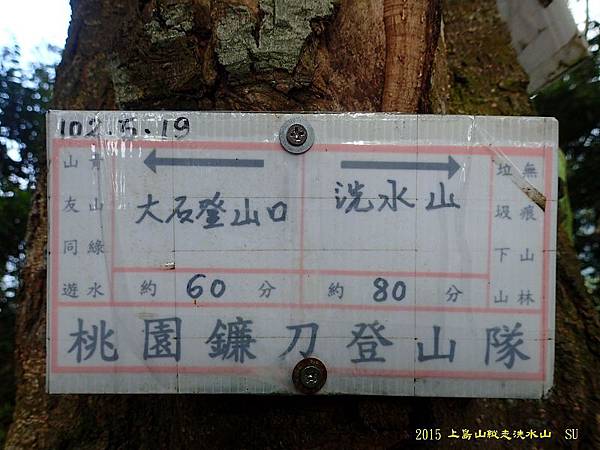 102.5.19
青山綠水
山友同遊
大石登山口
約 60 分
洗水山
約 80 分
無痕山林
垃圾下山
桃園鐮刀登山隊
2015 上島山縱走洗水山 SU